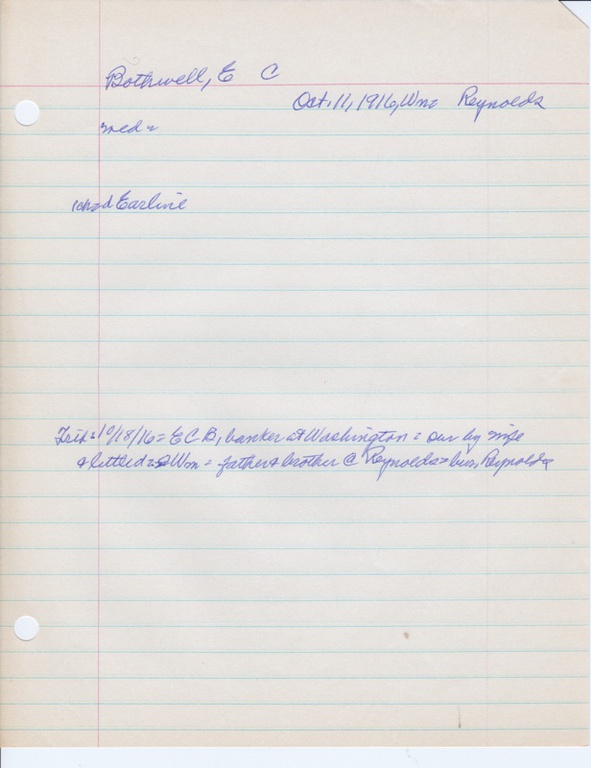 Bothwell, E C
Oct. 11, 1916, Wm= Reynolds
med=
1ch=d Earline
Trib=10/18/16= E C B, banker at Washington = sur by wife
& little d= s Wm = father & brother @ Reynolds= bur, Reynolds